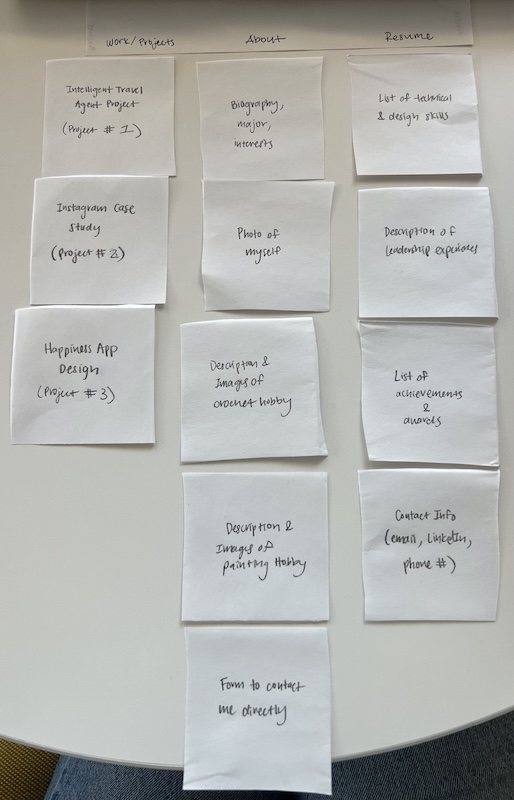 Work/Projects
Intelligent Travel
Agent Project
(Project # 1)
Instagram Case
Study
(Project # 2)
Happiness App
Design
(Project # 3)
About
Biography,
major,
interests
Photo of
myself
Description &
Images of
crochet hobby
Description &
Images of
painting Hobby
Form to contact
me directly
Resume
List of technical
& design skills
Description of
leadership experiences
List of
achievements
&
awards
Contact Info
(email, LinkedIn,
phone #)